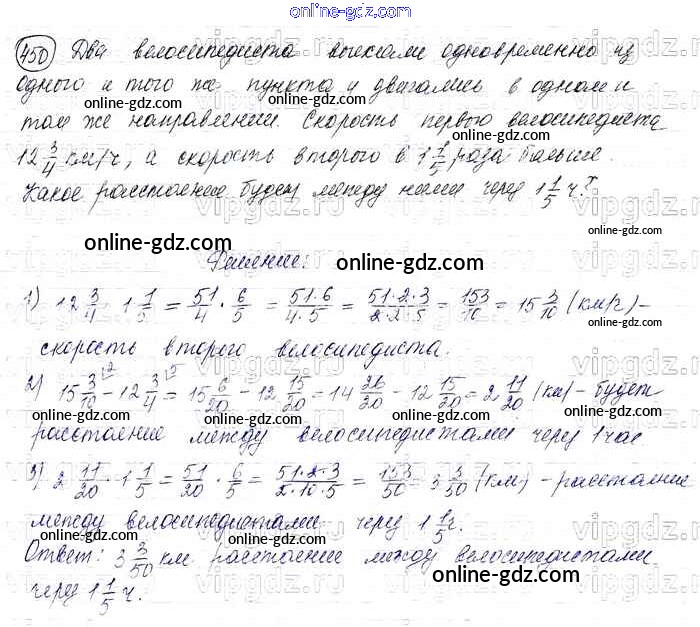 online-gdz.com
450 Два велосипедиста выехали одновременно из
одного и того же пункта и двигались в одном и
online-gdz.com online-gdz.com
том же направлении. Скорость первого велосипедиста
12 3/4 км/ч, а скорость второго в 1 1/5 раза больше.
online-gdz.com
Какое расстояние будет между ними через 1 1/5 ч?
online-gdz.com online-gdz.com
Решение: online-gdz.com
1) 12 3/4 · 1 1/5 = 51/4 · 6/5 = 51·6/4·5 = 51·2·3/2·2·5 = 153/10 = 15 3/10 (км/ч) –
online-gdz.com
скорость второго велосипедиста.
online-gdz.com
2) 15 3/10 – 12 3/4 = 15 6/20 – 12 15/20 = 14 26/20 – 12 15/20 = 2 11/20 (км) – будет
online-gdz.com online-gdz.com online-gdz.com
расстояние между велосипедистами через 1 час
3) 2 11/20 · 1 1/5 = 51/20 · 6/5 = 51·2·3/2·10·5 = 153/50 = 3 3/50 (км) – расстояние
online-gdz.com online-gdz.com
между велосипедистами через 1 1/5 ч.
online-gdz.com
Ответ: 3 3/50 км расстояние между велосипедистами
online-gdz.com
через 1 1/5 ч.
online-gdz.com